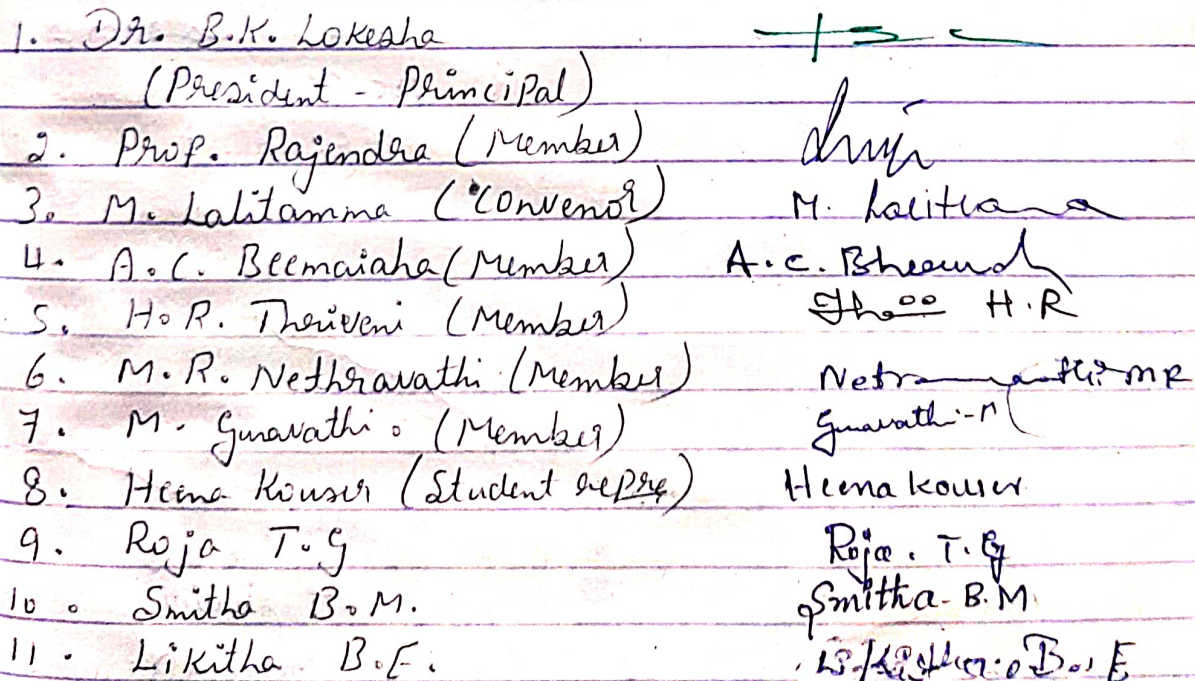 1. Dr. B.K. Lokesha
(President - Principal)
2. Prof. Rajendra (Member)
3. M. Lalitamma (Convenor) M. Lalithama
4. A.C. Beemaiaha (Member) A.C. Bheemaiah
5. H.R. Theriveni (Member) H.R
6. M.R. Nethravathi (Member) Netravathi MR
7. M. Gunavathi. (Member) Gunavathi-M
8. Heena Kouser (Student repre) Heena kouser
9. Roja T.G Roja. T.G
10. Smitha B.M. Smitha-B.M
11. Likitha B.E. Likitha. B.E